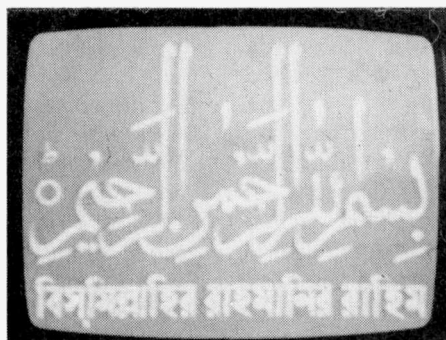 بِسْمِ اللهِ الرَّحْمٰنِ الرَّحِيْمِ
বিস্‌মিল্লাহির রাহমানির রাহিম